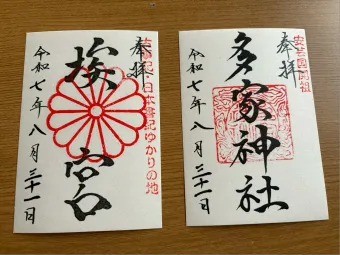 奉拝
古事記・日本書紀ゆかりの地
埃宮
令和七年八月三十一日
奉拝
安芸国開祖
多家神社
令和七年八月三十一日